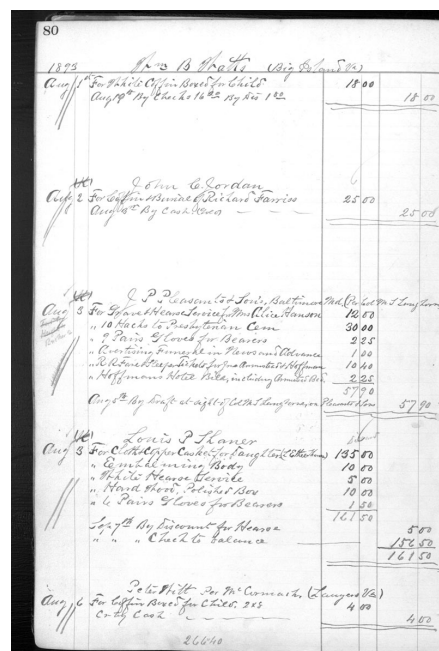 80
1893 Wm B Watts (Big Island Va)
Aug 1st For White Coffin Boxed for Child 18 00
Aug 19th By Checks 16 20 By Dis 1 80 18 00
John C Jordan
Aug 2 For Coffin & Burial of Richard Farriss 25 00
Aug By Cash 25 00
J P Pleasants & Sons, Baltimore Md. (Per Col M S Langhorne
Aug 3 For Grave & Hearse Service for Mrs Alice Hanson 12 00
" 10 Hacks to Presbyterian Cem 30 00
" 9 Pairs Gloves for Bearers 2 25
" Advertising Funeral in News and Advance 1 00
" R R Fare & Sleeper Tickets for Armistead & Hoffman 10 40
" Hoffmans Hotel Bill, including 2 25
57 90
Aug 5th By Draft at sight of Col M S Langhorne, on Pleasants & Sons 57 90
Louis P Shaner
Aug 3 For Cloth Copper Casket for Daughter 135 00
" Embalming Body 10 00
" White Hearse Service 5 00
" Hard Wood, Polished Box 10 00
" 6 Pairs Gloves for Bearers 1 50
161 50
Sep 7th By Discount for Hearse 5 00
" " " Check to balance 156 50
161 50
Peter Witt Per McCormack (Lawyers Va)
Aug 6 For Coffin Boxed for Child. 2x8 4 00
Cr By Cash 4 00
26640